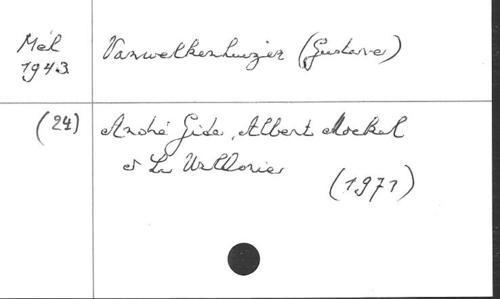 Mél
1943
Vanwelkenhuyzen (Gustave)
(24)
André Gide, Albert Mockel
et La Wallonie
(1971)